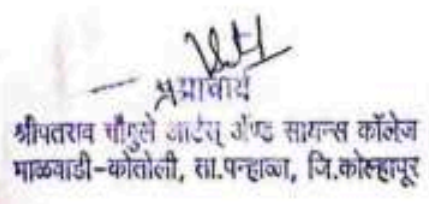 प्राचार्य
श्रीपतराव चौगुले आर्टस् ॲण्ड सायन्स कॉलेज
माळवाडी-कोतोली, ता.पन्हाळा, जि.कोल्हापूर